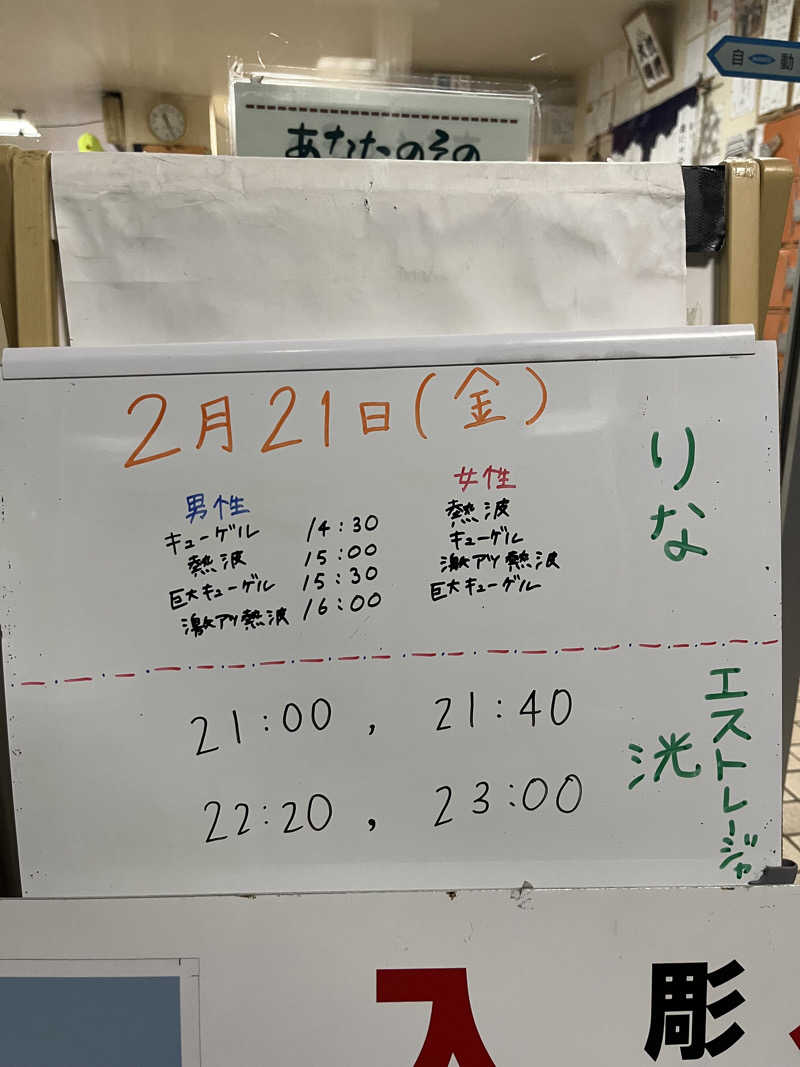 自 動
あなたのその
2月21日(金)
りな
男性 女性
キューゲル 14:30 熱波
熱波 15:00 キューゲル
巨大キューゲル 15:30 激アツ熱波
激アツ熱波 16:00 巨大キューゲル
エストレージャ
洸
21:00 , 21:40
22:20 , 23:00
入 彫